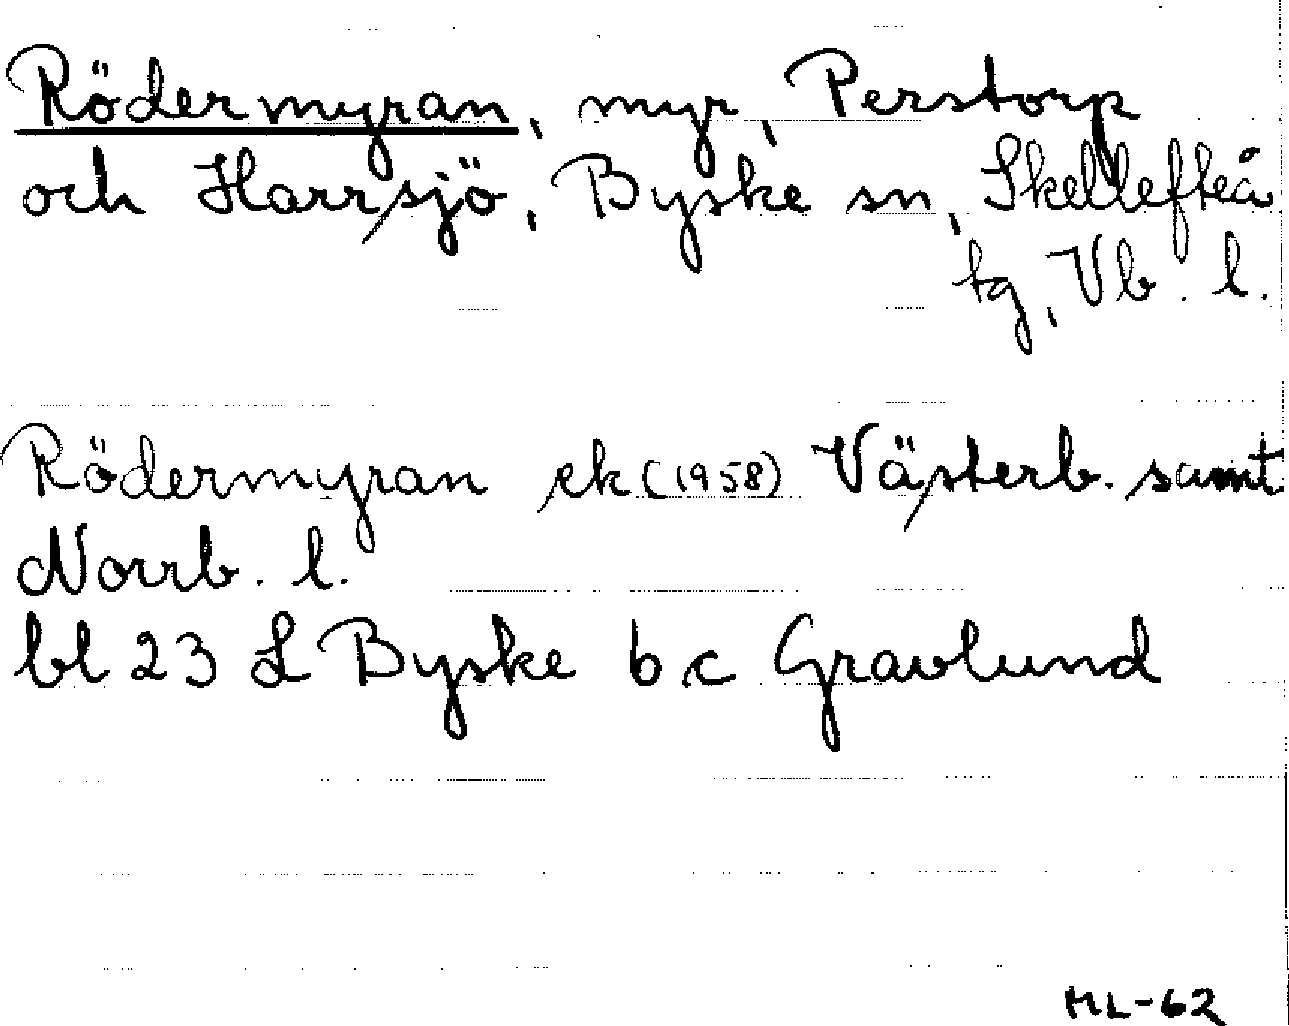 Rödermyran, myr, Perstorp
och Harrsjö, Byske sn, Skellefteå
tg, Vb. l.
Rödermyran ek (1958) Västerb. samt
Norrb. l.
bl 23 L Byske b c Gravlund
ML-62